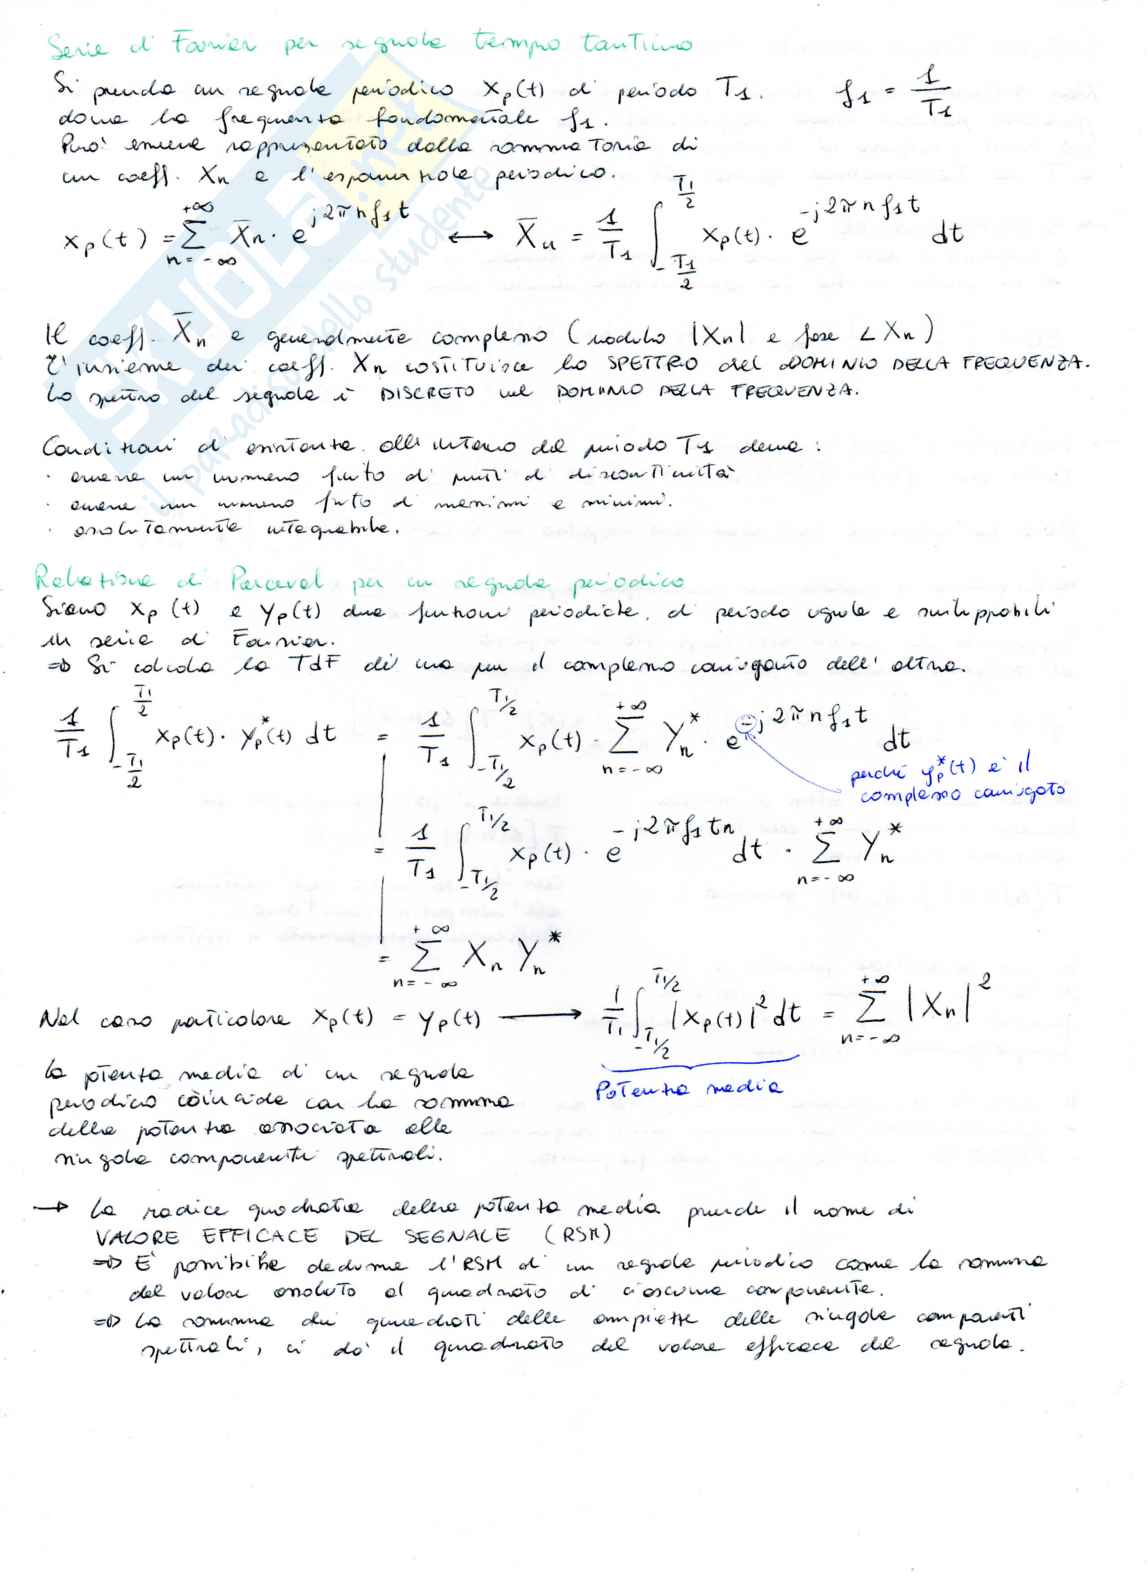 Serie di Fourier per segnale tempo continuo
Si prenda un segnale periodico xp(t) di periodo T1. f1 = 1/T1
dove la frequenza fondamentale f1.
Può essere rappresentato dalla sommatoria di
un coeff. Xn e l'esponenziale periodico.
xp(t) = Σ_{n=-∞}^{+∞} X̄n · e^{j2πnf1t} ⟷ X̄n = 1/T1 ∫_{-T1/2}^{T1/2} xp(t) · e^{-j2πnf1t} dt
Il coeff. X̄n è generalmente complesso (modulo |Xn| e fase ∠Xn)
L'insieme dei coeff. Xn costituisce lo SPETTRO del DOMINIO DELLA FREQUENZA.
Lo spettro del segnale è DISCRETO nel DOMINIO DELLA FREQUENZA.
Condizioni di esistenza. all'interno del periodo T1 deve:
· avere un numero finito di punti di discontinuità
· avere un numero finito di massimi e minimi.
· assolutamente integrabile.
Relazione di Parceval per un segnale periodico
Siano xp(t) e yp(t) due funzioni periodiche, di periodo uguale e sviluppabili
in serie di Fourier.
⇒ Si calcola la TdF di una per il complesso coniugato dell'altra.
1/T1 ∫_{-T1/2}^{T1/2} xp(t) · yp*(t) dt = 1/T1 ∫_{-T1/2}^{T1/2} xp(t) · Σ_{n=-∞}^{+∞} Yn* · e^{-j2πnf1t} dt
perché yp*(t) è il
complesso coniugato
= 1/T1 ∫_{-T1/2}^{T1/2} xp(t) · e^{-j2πf1tn} dt · Σ_{n=-∞}^{+∞} Yn*
= Σ_{n=-∞}^{+∞} Xn Yn*
Nel caso particolare xp(t) = yp(t) → 1/T1 ∫_{-T1/2}^{T1/2} |xp(t)|² dt = Σ_{n=-∞}^{+∞} |Xn|²
Potenza media
La potenza media di un segnale
periodico coincide con la somma
della potenza associata alle
singole componenti spettrali.
→ La radice quadrata della potenza media prende il nome di
VALORE EFFICACE DEL SEGNALE (RSM)
⇒ È possibile dedurre l'RSM di un segnale periodico come la somma
del valore assoluto al quadrato di ciascuna componente.
⇒ La somma dei quadrati delle ampiezze delle singole componenti
spettrali, ci dà il quadrato del valore efficace del segnale.
SKUOLA.net
il paradiso dello studente